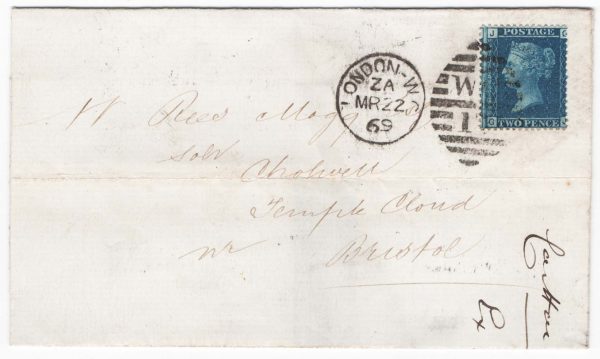 LONDON-W.C
ZA
MR 22
69
W
1
POSTAGE
J G
G J
TWO PENCE
W Rees Mogg
Solr
Cholwell
Temple Cloud
nr Bristol
Ex